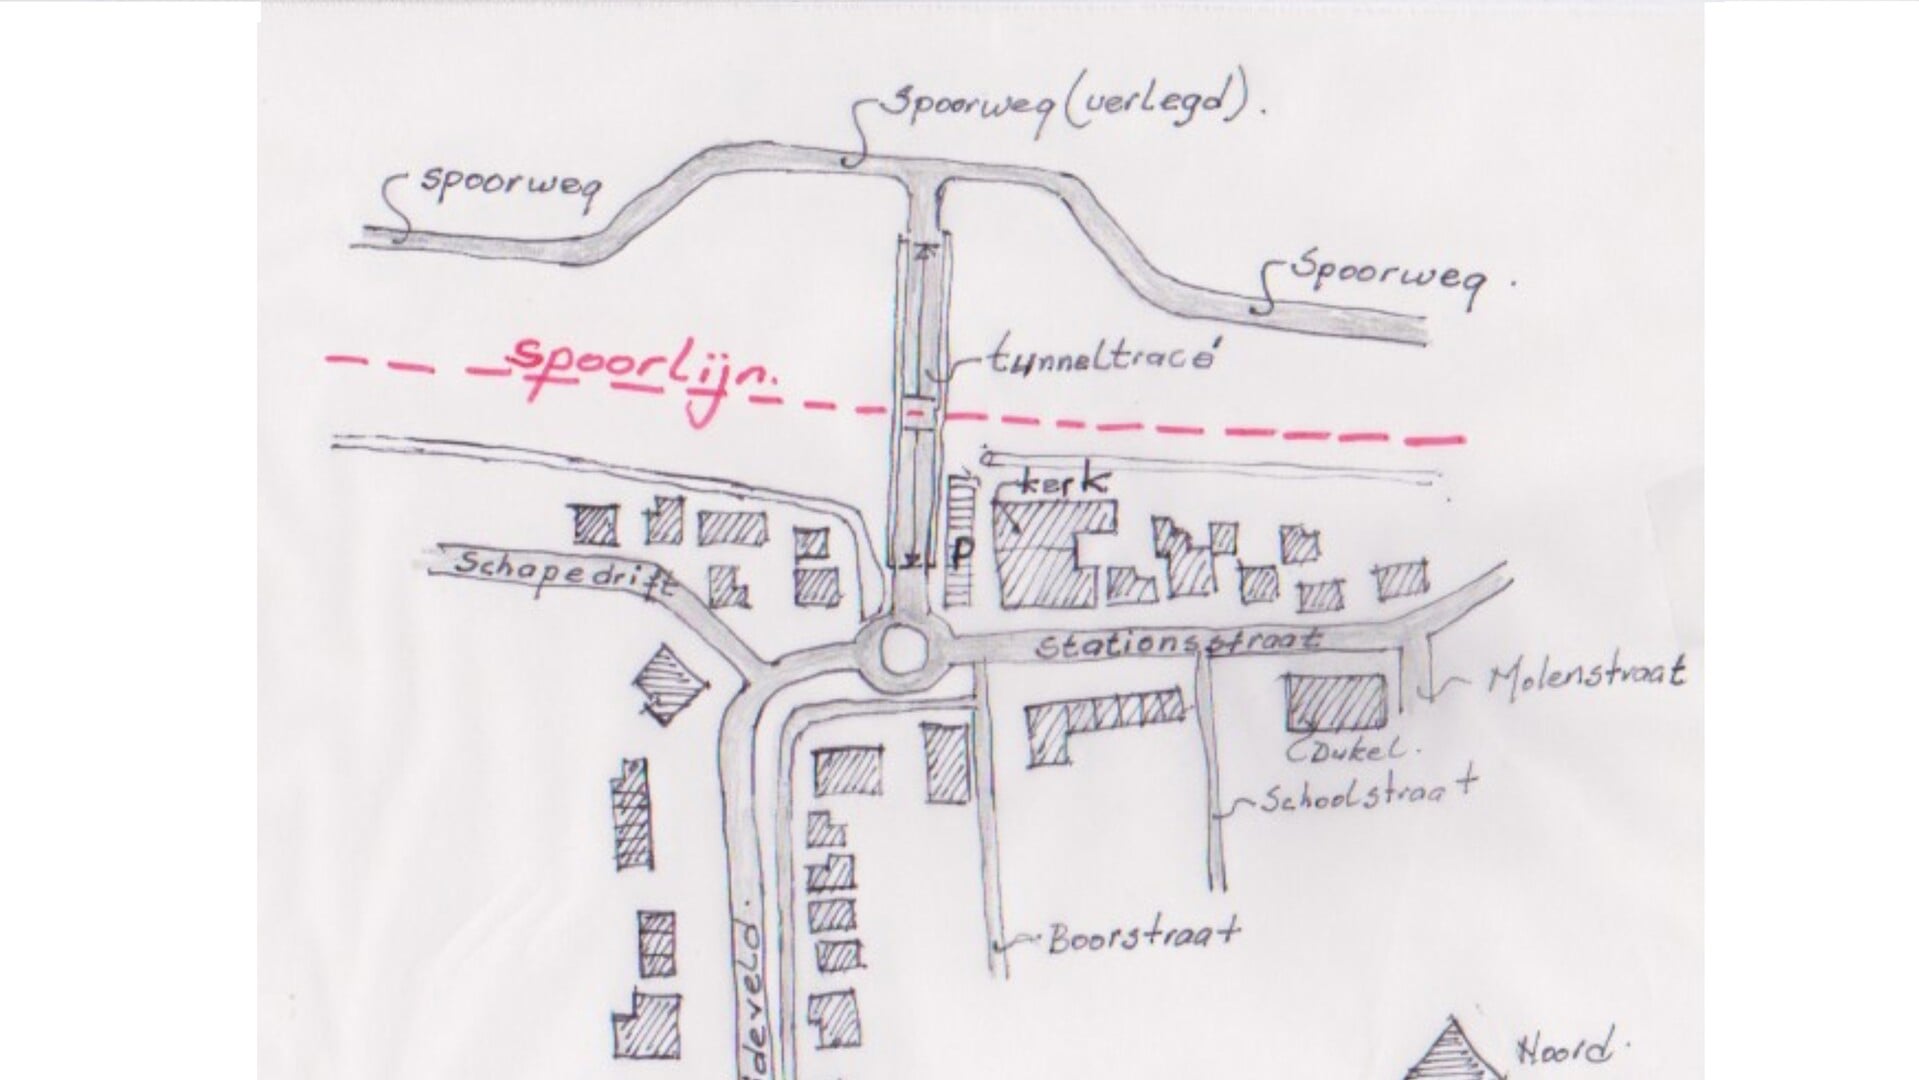 Spoorweg (verlegd).
spoorweg
Spoorweg.
tunneltracé
spoorlijn.
kerk
P
Schapedrift
Stationsstraat
Molenstraat
Dukel.
Schoolstraat
Boorstraat
ideveld.
Noord.